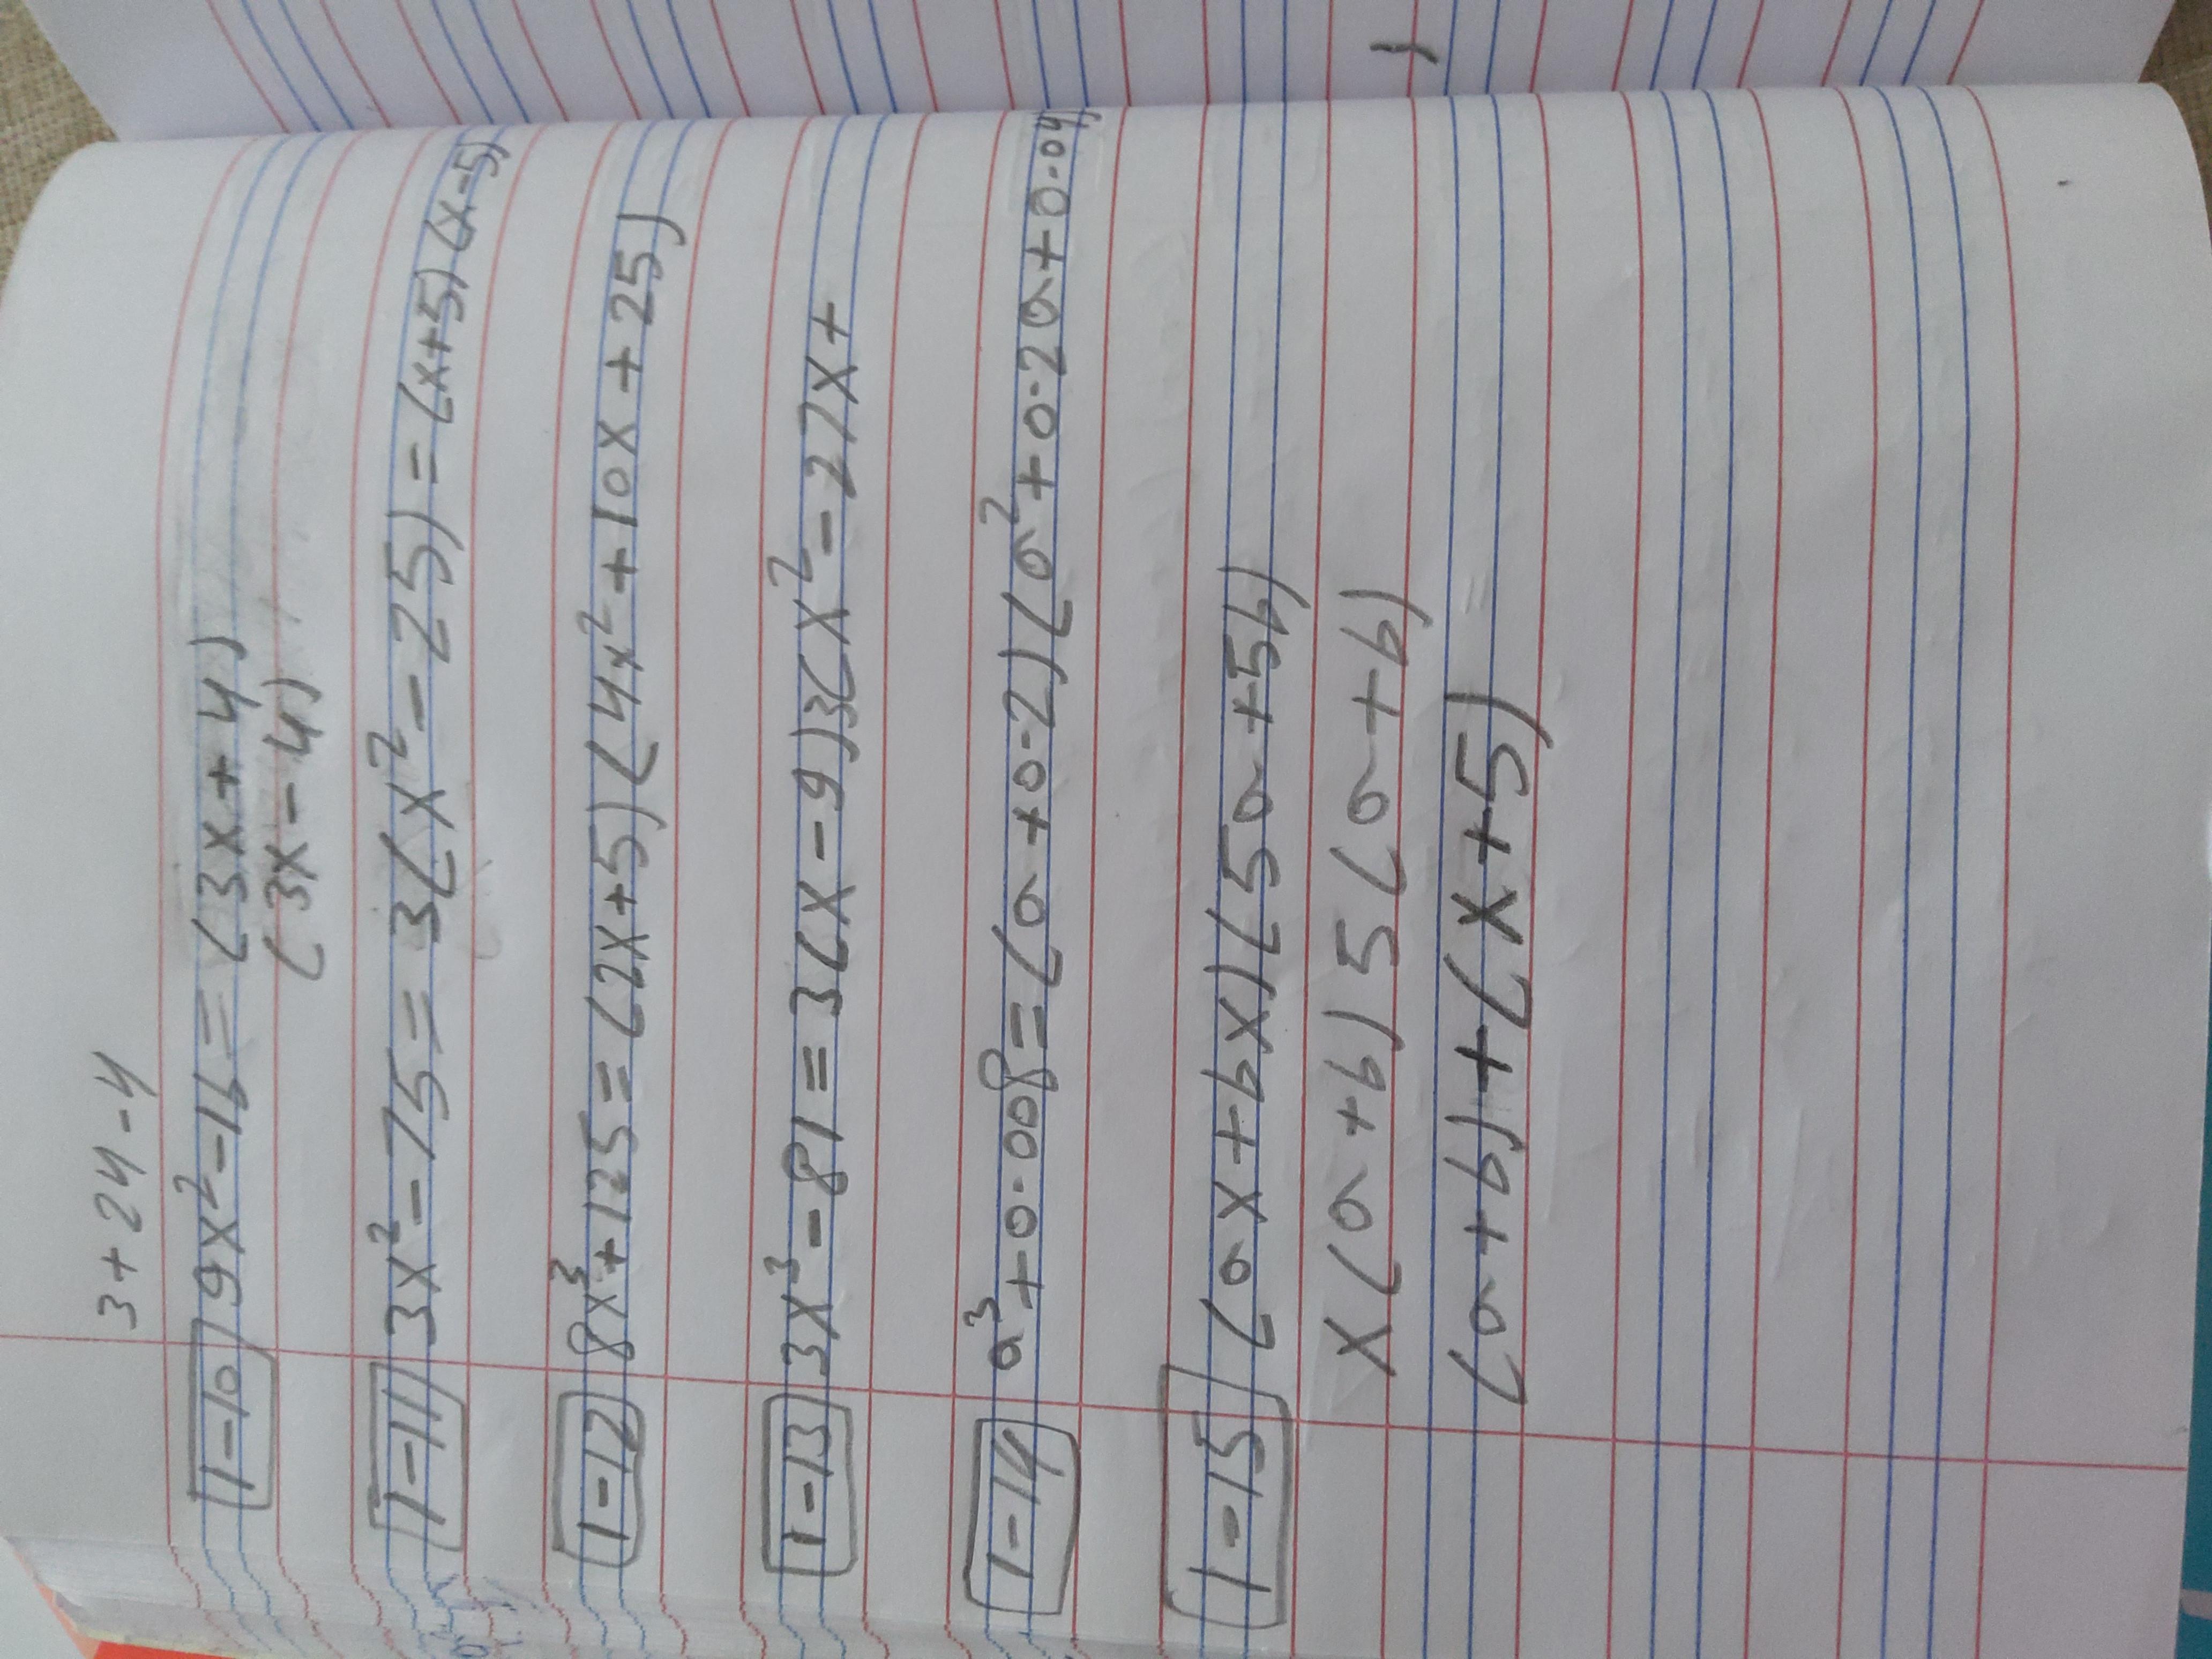 3+24-4
1-10 9x²-16=(3x+4)
(3x-4)
1-11 3x²-75=3(x²-25)=(x+5)(x-5)
1-12 8x³+125=(2x+5)(4x²+10x+25)
1-13 3x³-81=3(x-9)3(x²-27x+
1-14 a³+0.008=(a+0.2)(a²+0.2a+0.04)
1-15 (ax+bx)(5a+5b)
x(a+b)5(a+b)
(a+b)+(x+5)